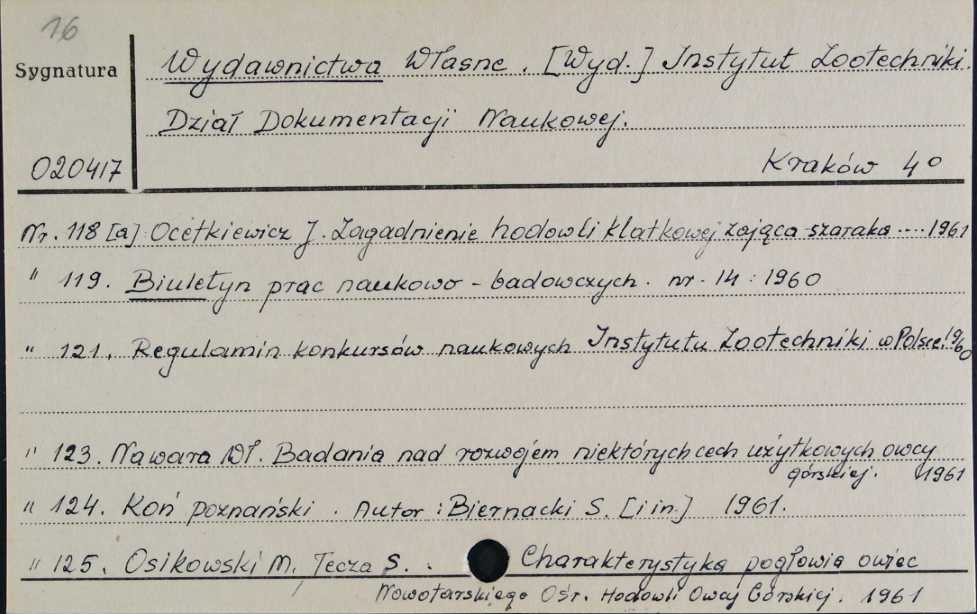 16
Sygnatura
Wydawnictwa Własne. [Wyd.] Instytut Zootechniki.
Dział Dokumentacji Naukowej.
020417
Kraków 4°
Nr. 118 [a] Ocetkiewicz J. Zagadnienie hodowli klatkowej zająca-szaraka .... 1961
" 119. Biuletyn prac naukowo-badawczych. nr. 14 : 1960
" 121. Regulamin konkursów naukowych Instytutu Zootechniki w Polsce!
" 123. Nawara Wł. Badania nad rozwojem niektórych cech użytkowych owcy
górskiej. 1961
" 124. Koń poznański. Autor : Biernacki S. [i in.] 1961.
" 125. Osikowski M. Tecza S. . Charakterystyka pogłowia owiec
Nowotarskiego Ośr. Hodowli Owcy Górskiej. 1961